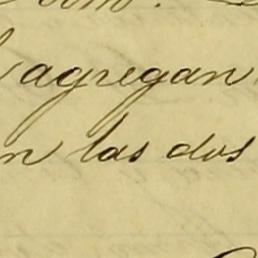 agregan
n las dos